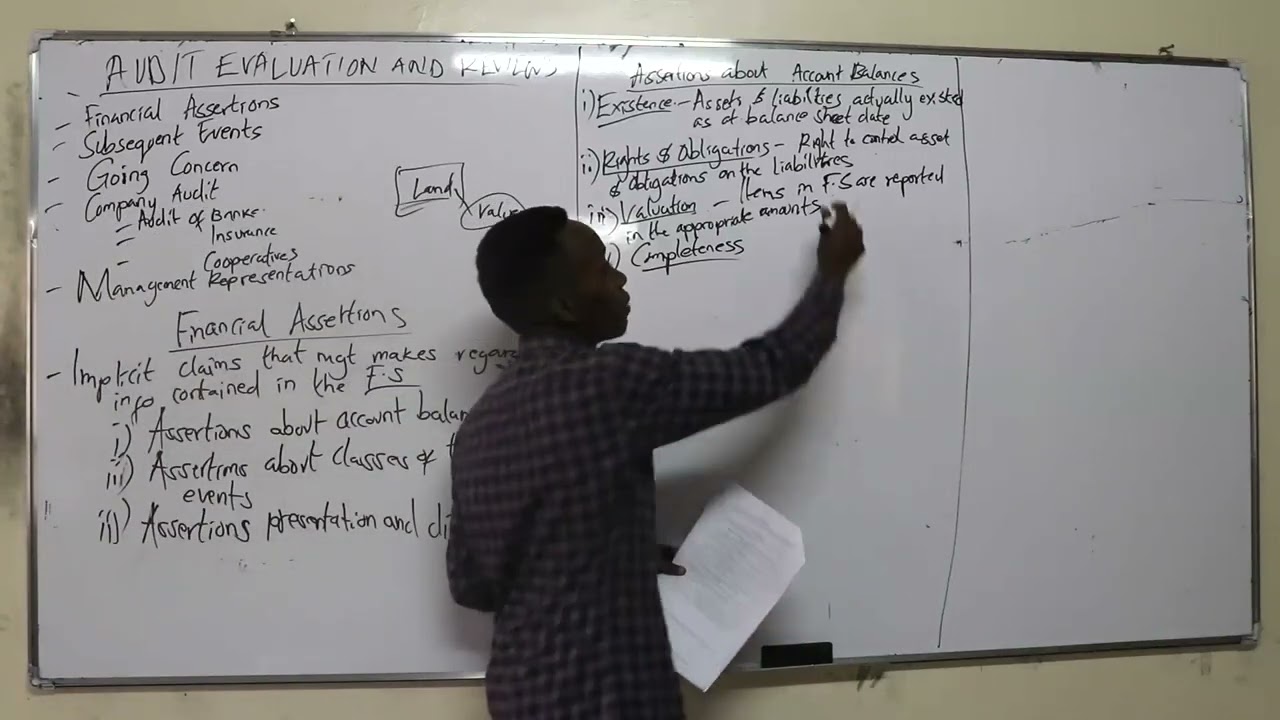 AUDIT EVALUATION AND REVIEWS
- Financial Assertions
- Subsequent Events
- Going Concern
- Company Audit
- Audit of Banks
- Insurance
- Cooperatives
- Management Representations
Land
Financial Assertions
- Implicit claims that mgt makes
info contained in the F.S
i) Assertions about account
ii) Assertions about classes of
events
iii) Assertions presentation and
Assertions about Account Balances
i) Existence - Assets & liabilities actually existed
as at balance sheet date
ii) Rights & Obligations - Right to control asset
& obligations on the liabilities
iii) Valuation - Items in F.S are reported
in the appropriate amounts
Completeness